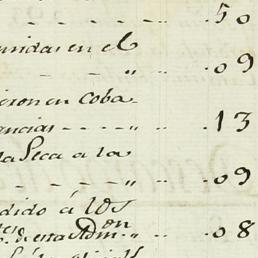 .50
unidas en el
" .09
cion en coba-
ancias .13
la Seca a la
" .09
dido á los
de esta Admon " .08